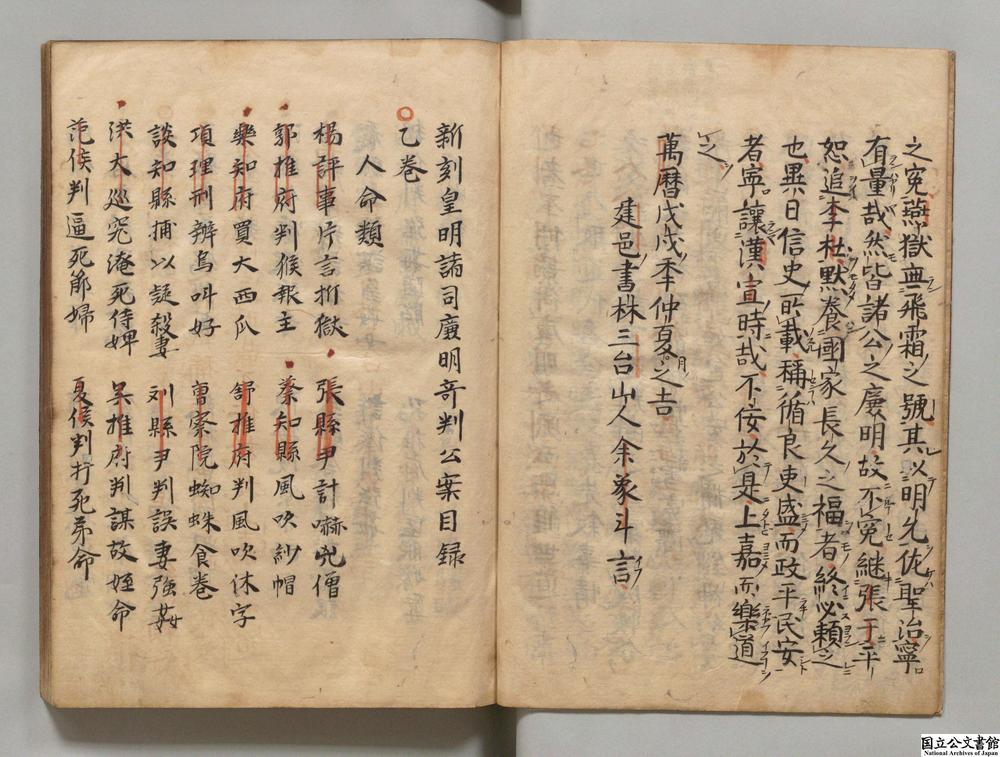 之冤燕獄無飛霜之號其以明允佐聖治寧
有量哉然皆諸公之廉明故不冤継張于平
恕追李杜默養國家長久之福者終必頼之
也異日信史所載稱循良吏盛而政平民安
者寧讓漢宣時哉不佞於是上嘉而樂道
之
萬曆戊戌季仲夏月之吉
建邑書林三台山人余象斗言
新刻皇明諸司廉明奇判公案目録
乙卷
人命類
楊評事片言折獄 張縣尹計嚇兇僧
郭推府判猴報主 蔡知縣風吹紗帽
樂知府買大西瓜 舒推府判風吹休字
項理刑辨烏叫好 曹察院蜘蛛食卷
談知縣捕以疑殺妻 刘縣尹判誤妻強姦
洪大巡究淹死侍婢 吴推府判謀故姪命
范侯判逼死節婦 夏侯判打死弟命
国立公文書館
National Archives of Japan